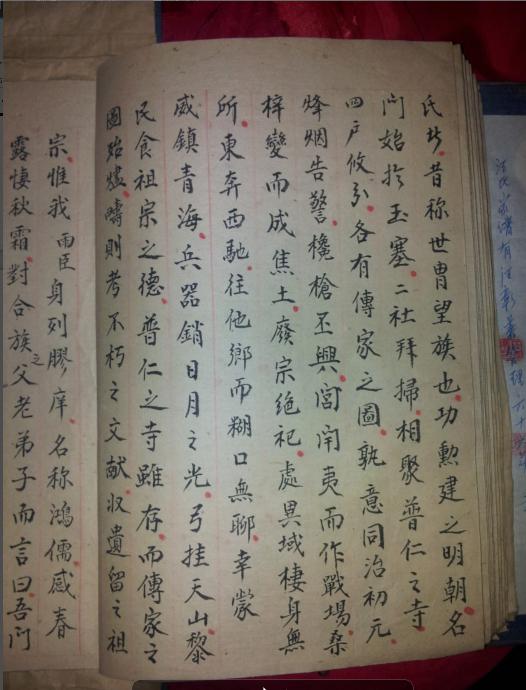 氏於昔称世胄望族也功勲建之明朝名
门始扵玉塞二社拜掃相聚普仁之寺
四户攸分各有傳家之圖孰意同治初元
烽烟告警欃槍丕興閭閈夷而作戰場桑
梓變而成焦土廢宗绝祀處異域棲身無
所東奔西馳往他鄉而糊口無聊幸蒙
威鎮青海兵器銷日月之光弓挂天山黎
民食祖宗之德普仁之寺雖存而傳家之
圖殆燼疇則考不朽之文献收遺留之祖
宗惟我雨臣身列膠庠名称鴻儒感春
露悽秋霜對合族之父老弟子而言曰吾门